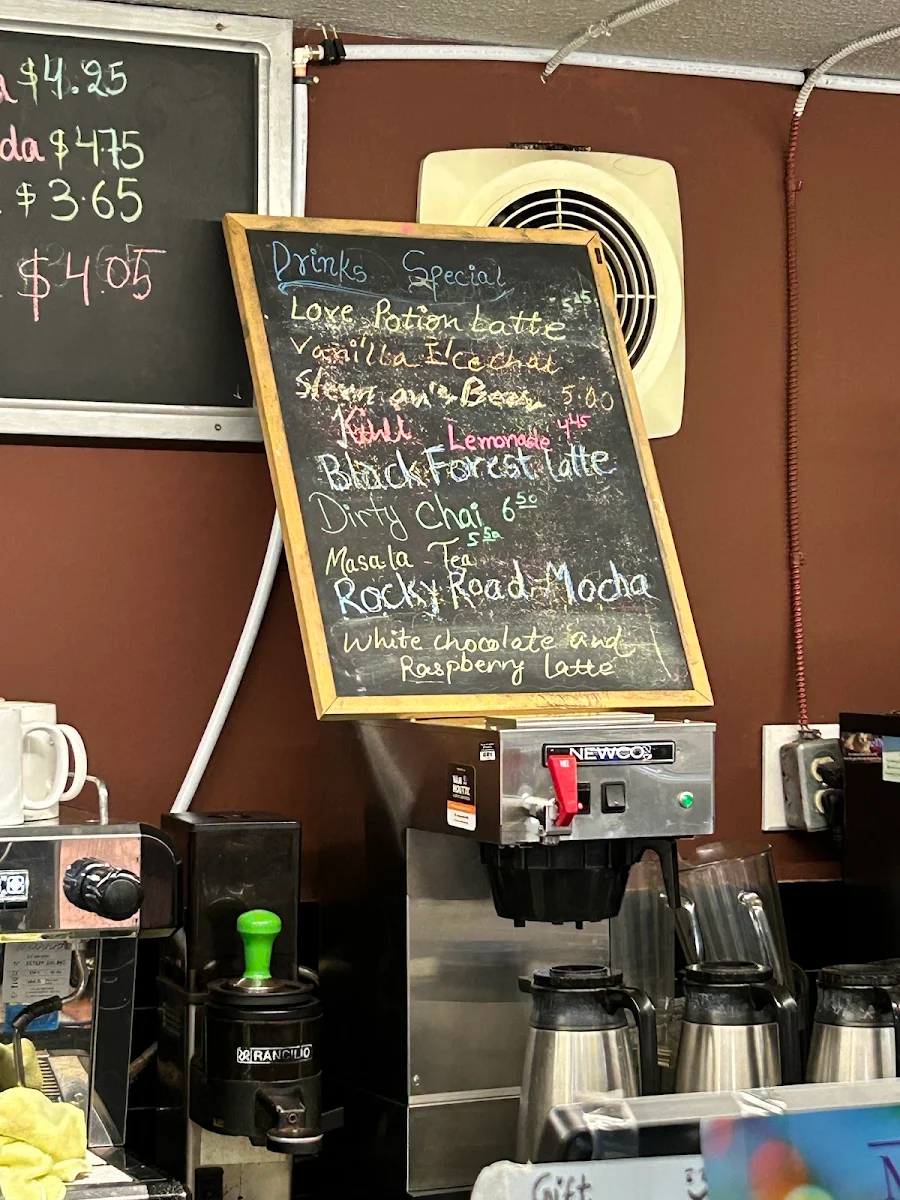 $4.25
da $4.75
$3.65
$4.05
Drinks Special
Love Potion Latte 5.25
Vanilla Ice chai
Beer 5.00
Kiwi Lemonade 4.45
Black Forest latte
Dirty Chai 6.50
Masala Tea 5.50
Rocky Road Mocha
White chocolate and
Raspberry latte
NEWCO
RANCILIO
Gift